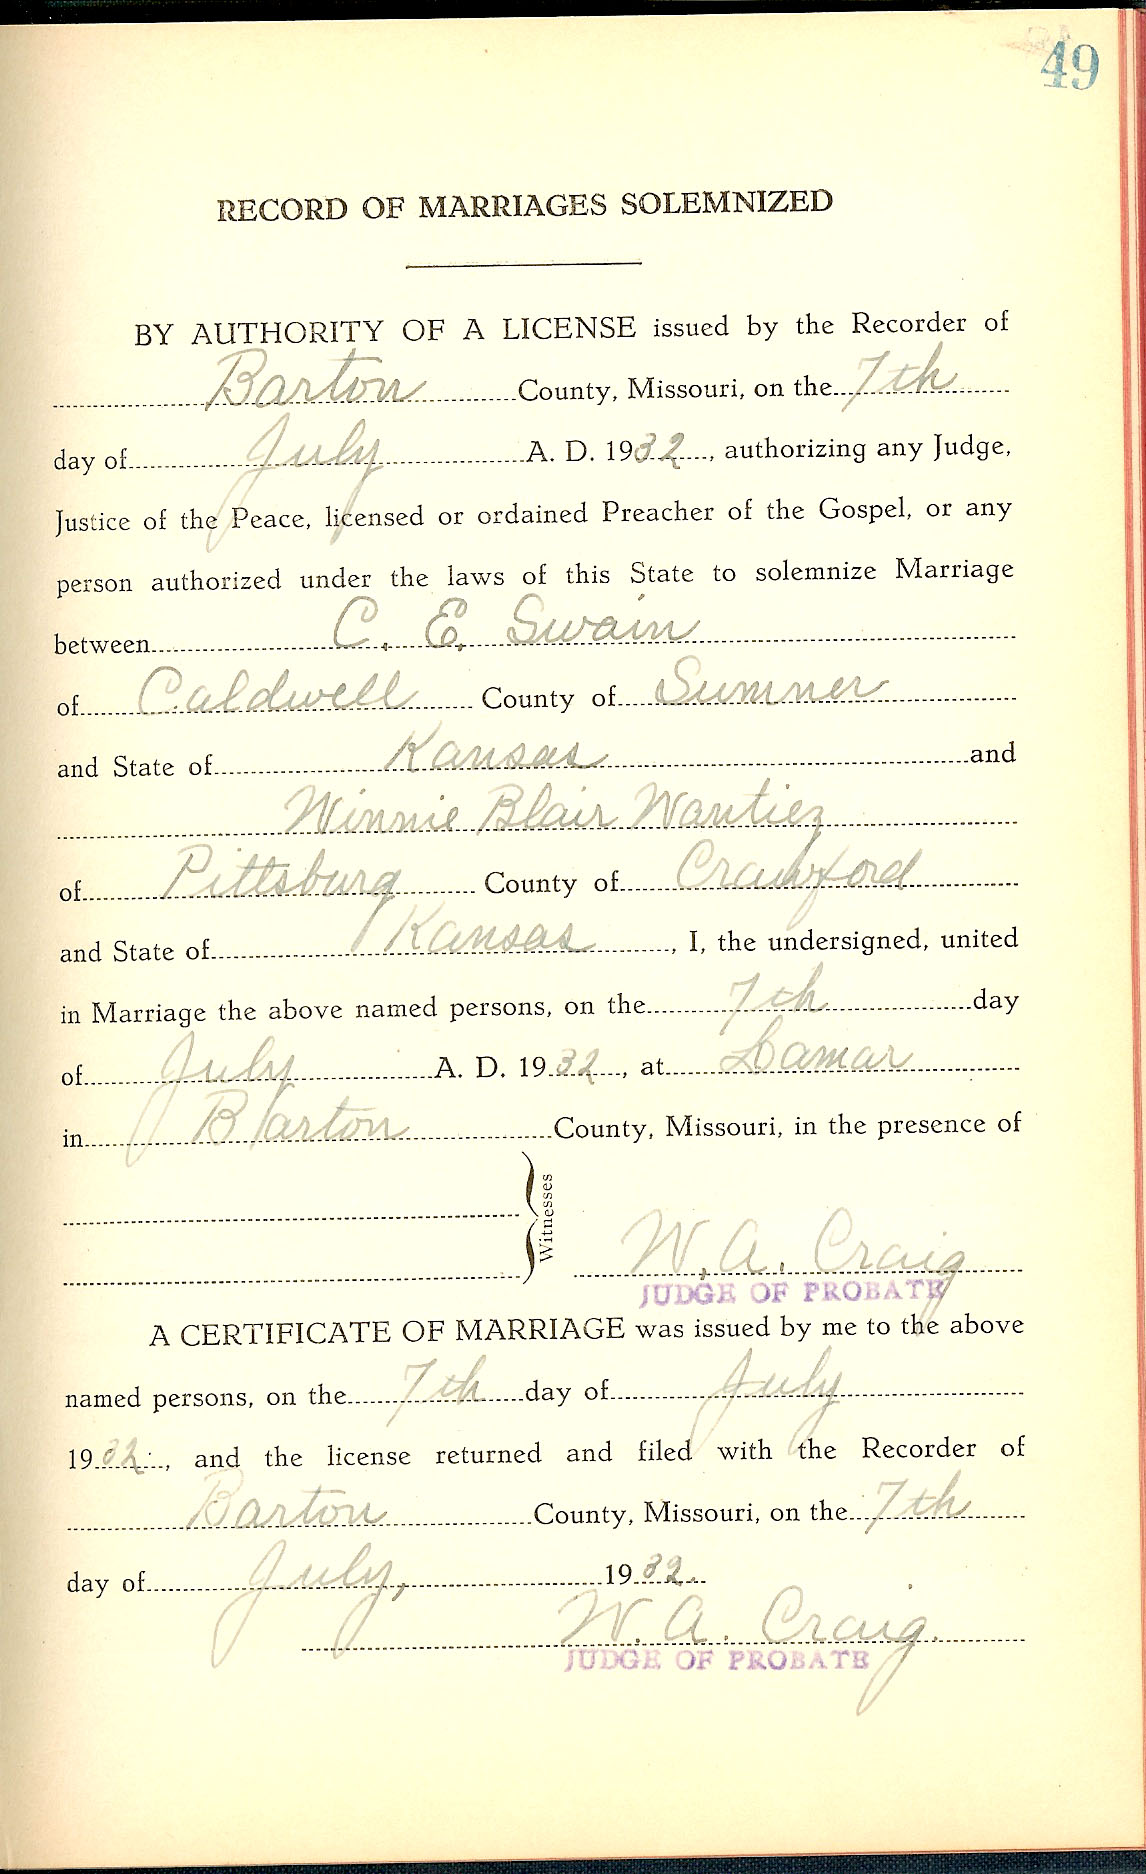 49
RECORD OF MARRIAGES SOLEMNIZED
BY AUTHORITY OF A LICENSE issued by the Recorder of
Barton County, Missouri, on the 7th
day of July A. D. 1932, authorizing any Judge,
Justice of the Peace, licensed or ordained Preacher of the Gospel, or any
person authorized under the laws of this State to solemnize Marriage
between C. E. Swain
of Caldwell County of Sumner
and State of Kansas and
Winnie Blair Wantiez
of Pittsburg County of Crawford
and State of Kansas, I, the undersigned, united
in Marriage the above named persons, on the 7th day
of July A. D. 1932, at Lamar
in Barton County, Missouri, in the presence of
Witnesses
W. A. Craig
JUDGE OF PROBATE
A CERTIFICATE OF MARRIAGE was issued by me to the above
named persons, on the 7th day of July
1932, and the license returned and filed with the Recorder of
Barton County, Missouri, on the 7th
day of July, 1932
W. A. Craig.
JUDGE OF PROBATE